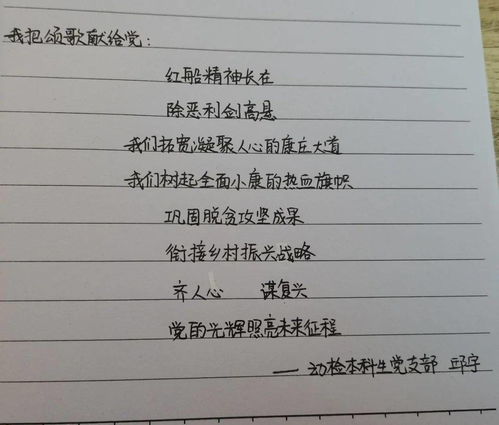 我把颂歌献给党：
红船精神长在
除恶利剑高悬
我们拓宽凝聚人心的康庄大道
我们树起全面小康的热血旗帜
巩固脱贫攻坚成果
衔接乡村振兴战略
齐人心 谋复兴
党的光辉照亮未来征程
——动检本科生党支部 邱宇